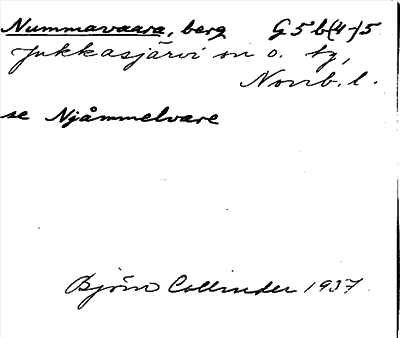 Nummavaara, berg G5b(4-)5
Jukkasjärvi sn o. tg,
Norrb. l.
se Njåmmelvare
Björn Collinder 1937.